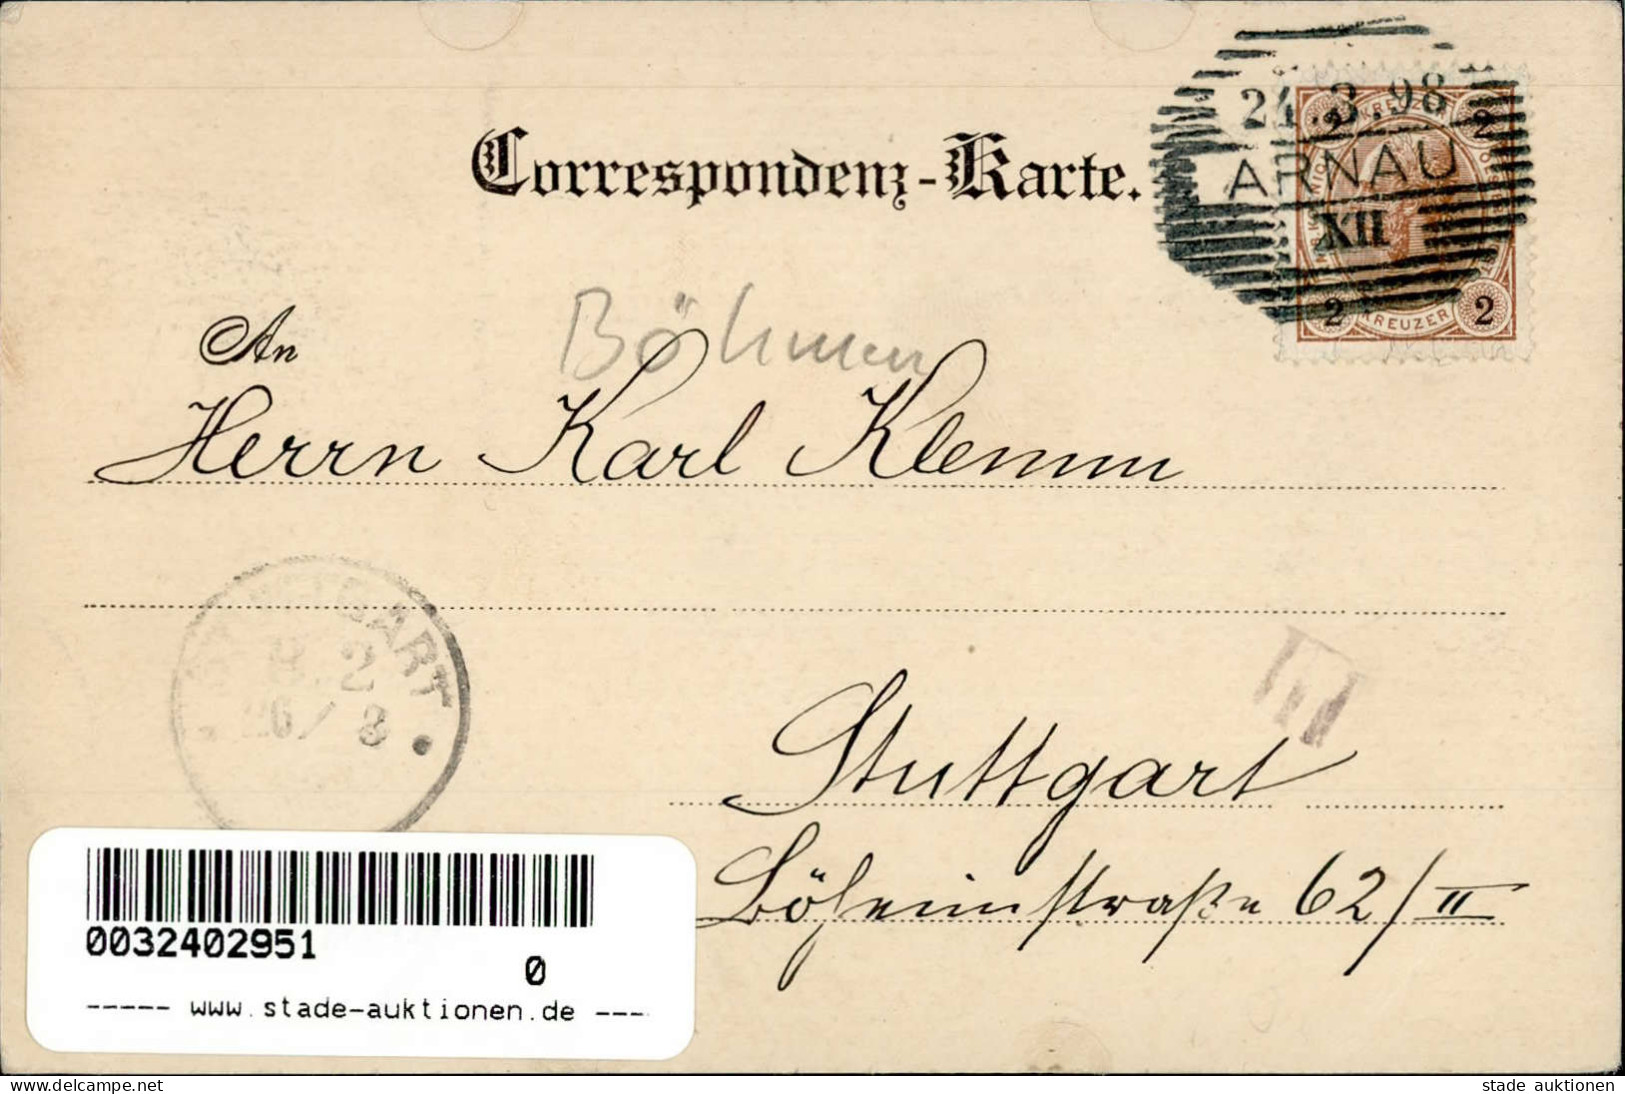 24.3.98
ARNAU
XII
2 KREUZER 2
2 KREUZER 2
Correspondenz-Karte.
Böhmen
An
Herrn Karl Klemm
STUTTGART
8.2
26/3
III
Stuttgart
Böheimstraße 62/II
0032402951
0
----- www.stade-auktionen.de ---
www.delcampe.net
stade auktionen